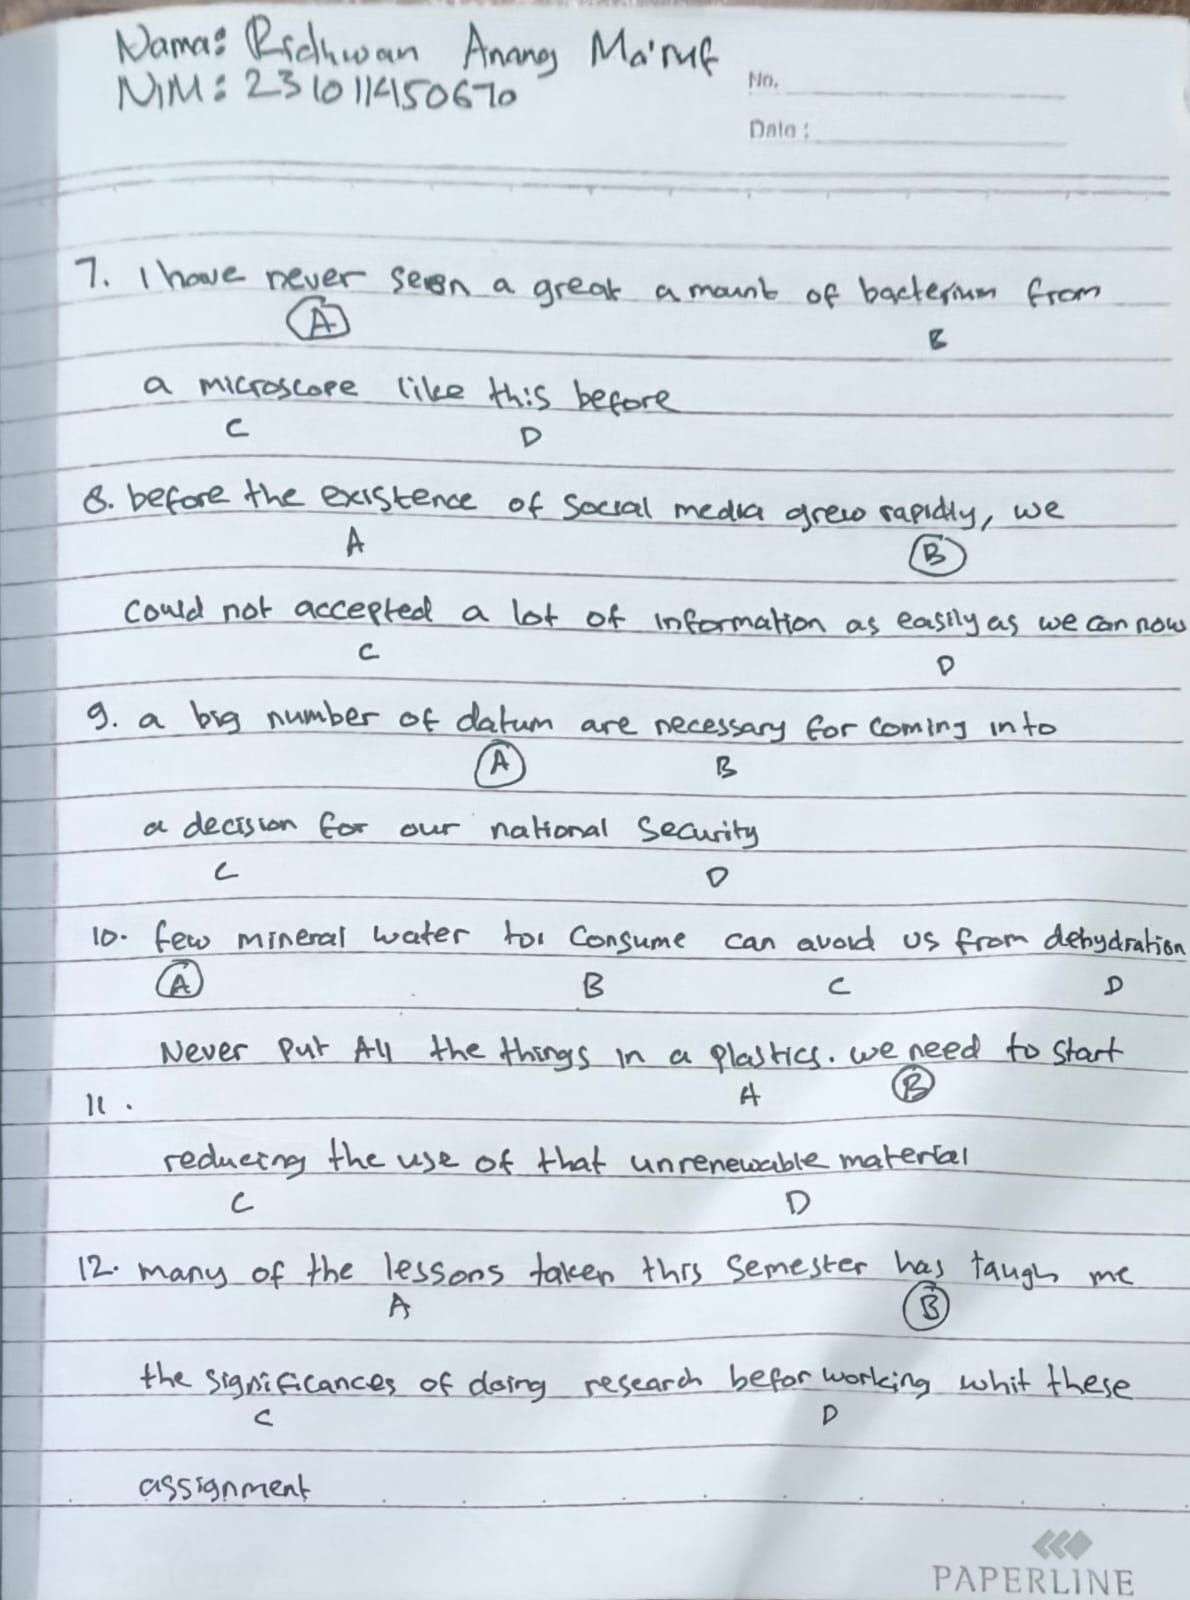 Nama: Ridhwan Anang Ma'ruf
NIM: 231011450670
No.
Date :
7. I have never seen a great amount of bacterium from
A B
a microscope like this before
C D
8. before the existence of social media grew rapidly, we
A B
could not accepted a lot of information as easily as we can now
C D
9. a big number of datum are necessary for coming into
A B
a decision for our national security
C D
10. few mineral water to consume can avoid us from dehydration
A B C D
Never put All the things in a plastics. we need to start
11. A B
reducing the use of that unrenewable material
C D
12. many of the lessons taken this semester has taugh me
A B
the significances of doing research befor working whit these
C D
assignment
PAPERLINE